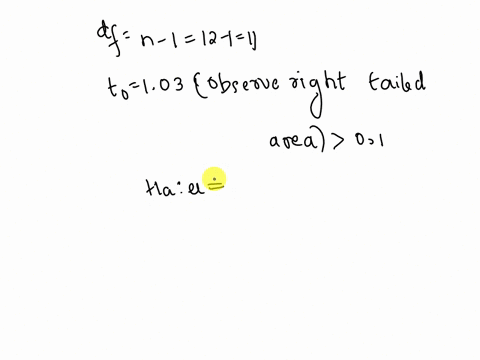 df = n - 1 = 12-1 = 11
t₀ = 1.03 {observe right tailed
area) > 0.1
Ha: u =